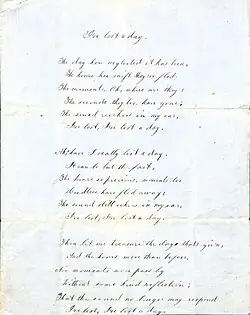 I've lost a day.
The day how neglected it has been,
The hours how swift they've fled.
The moments, Oh, where are they?
The seconds they too, have gone;
The sound reechoes in my ear,
I've lost, I've lost a day.
Ah, have I really lost a day.
It can be but the fact,
The hours so precious, minutes too
Have fled away;
The sound still echoes in my ear,
I've lost, I've lost a day.
Then let me treasure the days that's given,
And the hours more than before,
No moments may pass by
Without some kind reflection;
That the sound no longer may respond
I've lost, I've lost a day.